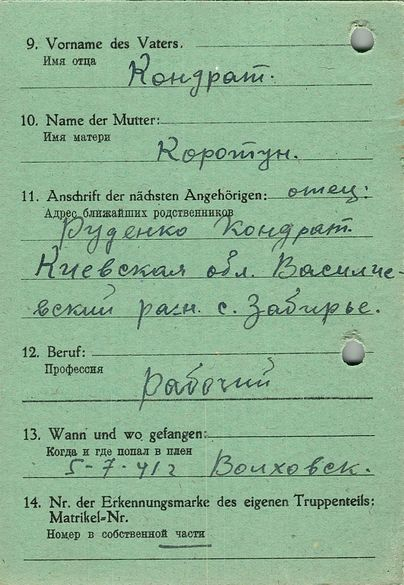 9. Vorname des Vaters.
Имя отца
Кондрат.
10. Name der Mutter:
Имя матери
Коротун.
11. Anschrift der nächsten Angehörigen: отец:
Адрес ближайших родственников
Руденко Кондрат
Киевская обл. Василие-
вский райн. с. Забирье.
12. Beruf:
Профессия
рабочий
13. Wann und wo gefangen:
Когда и где попал в плен
5-7-41г Волховск.
14. Nr. der Erkennungsmarke des eigenen Truppenteils:
Matrikel-Nr.
Номер в собственной части